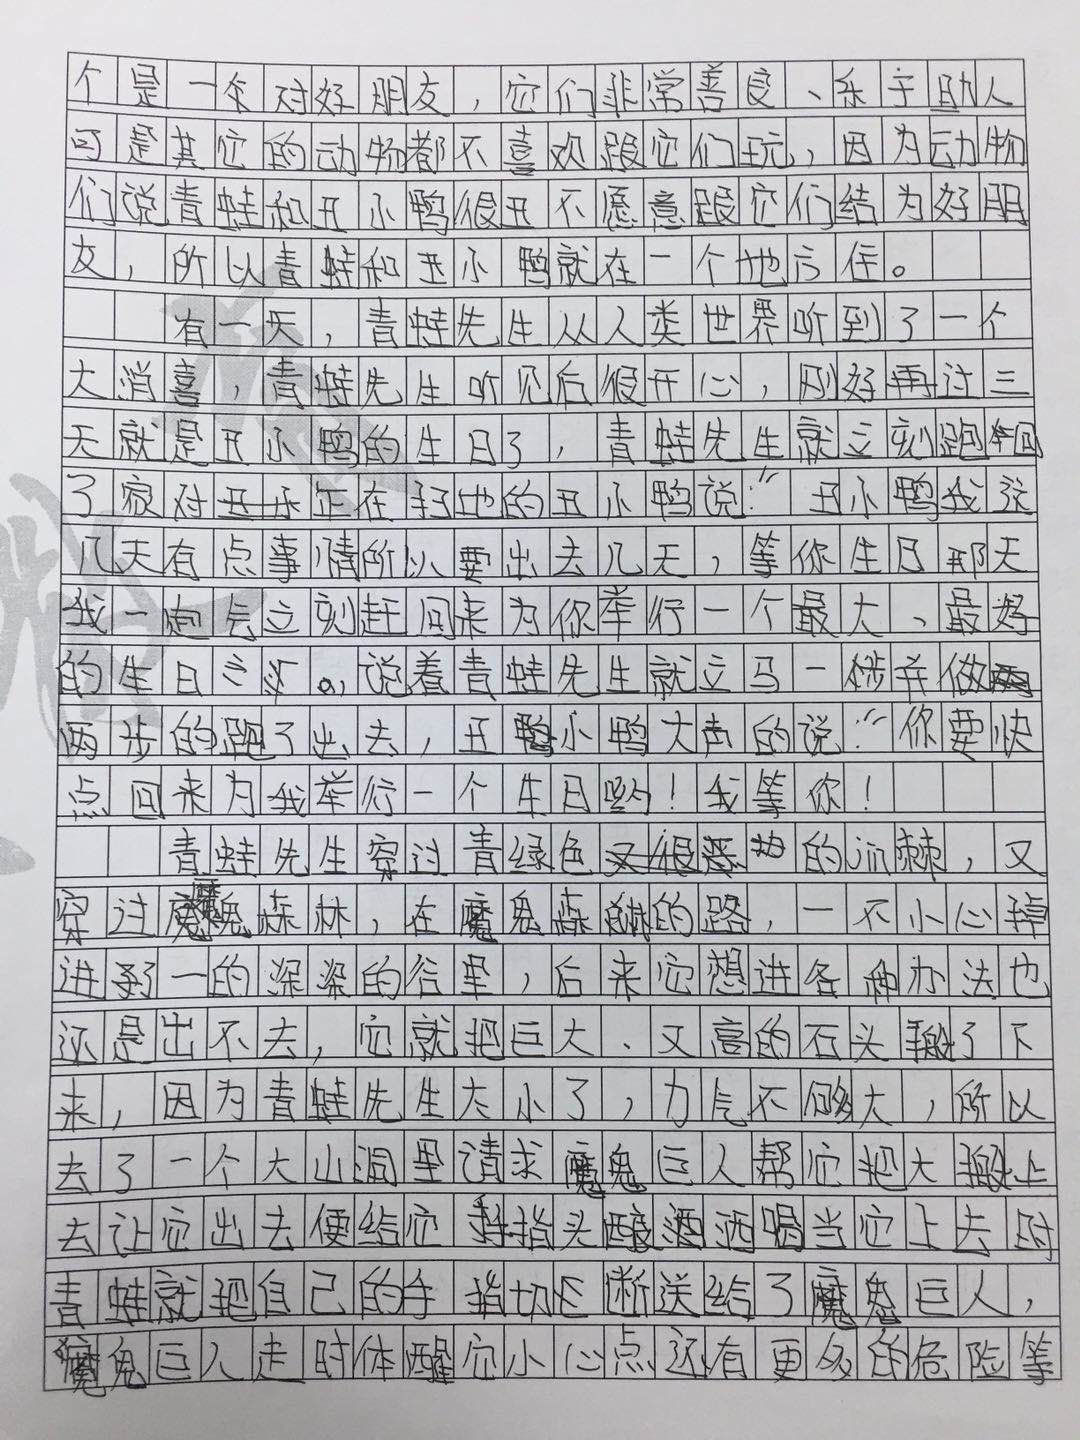 个是一对好朋友，它们非常善良、乐于助人
可是其它的动物都不喜欢跟它们玩，因为动物
们说青蛙和丑小鸭很丑不愿意跟它们结为好朋
友，所以青蛙和丑小鸭就在一个地方住。
有一天，青蛙先生从人类世界听到了一个
大消喜，青蛙先生听见后很开心，刚好再过三
天就是丑小鸭的生日了，青蛙先生就立刻跑回
了家对正在扫地的丑小鸭说：“丑小鸭我这
几天有点事情所以要出去几天，等你生日那天
我一定会立刻赶回来为你举行一个最大、最好
的生日。，说着青蛙先生就立马一步并做
两步的跑了出去，丑小鸭大声的说：“你要快
点回来为我举行一个生日哟！我等你！
青蛙先生穿过青绿色的荆棘，又
穿过魔鬼森林，在魔鬼森林的路，一不小心掉
进了一的深深的谷里，后来它想进各种办法也
还是出不去，它就把巨大、又高的石头搬了下
来，因为青蛙先生太小了，力气不够大，所以
去了一个大山洞里请求魔鬼巨人帮它把大搬上
去让它出去便给它指头酿酒喝当它上去时
青蛙就把自己的手指切断送给了魔鬼巨人，
魔鬼巨人走时体醒它小心点还有更多的危险等